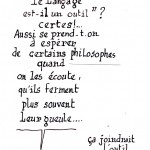 Le Langage
est-il un outil" ?
certes!...
Aussi se prend.t.on
à espérer
de certains philosophes
quand
on les écoute,
qu'ils ferment
plus souvent
leur gueule....
ça joindruit
l'outil